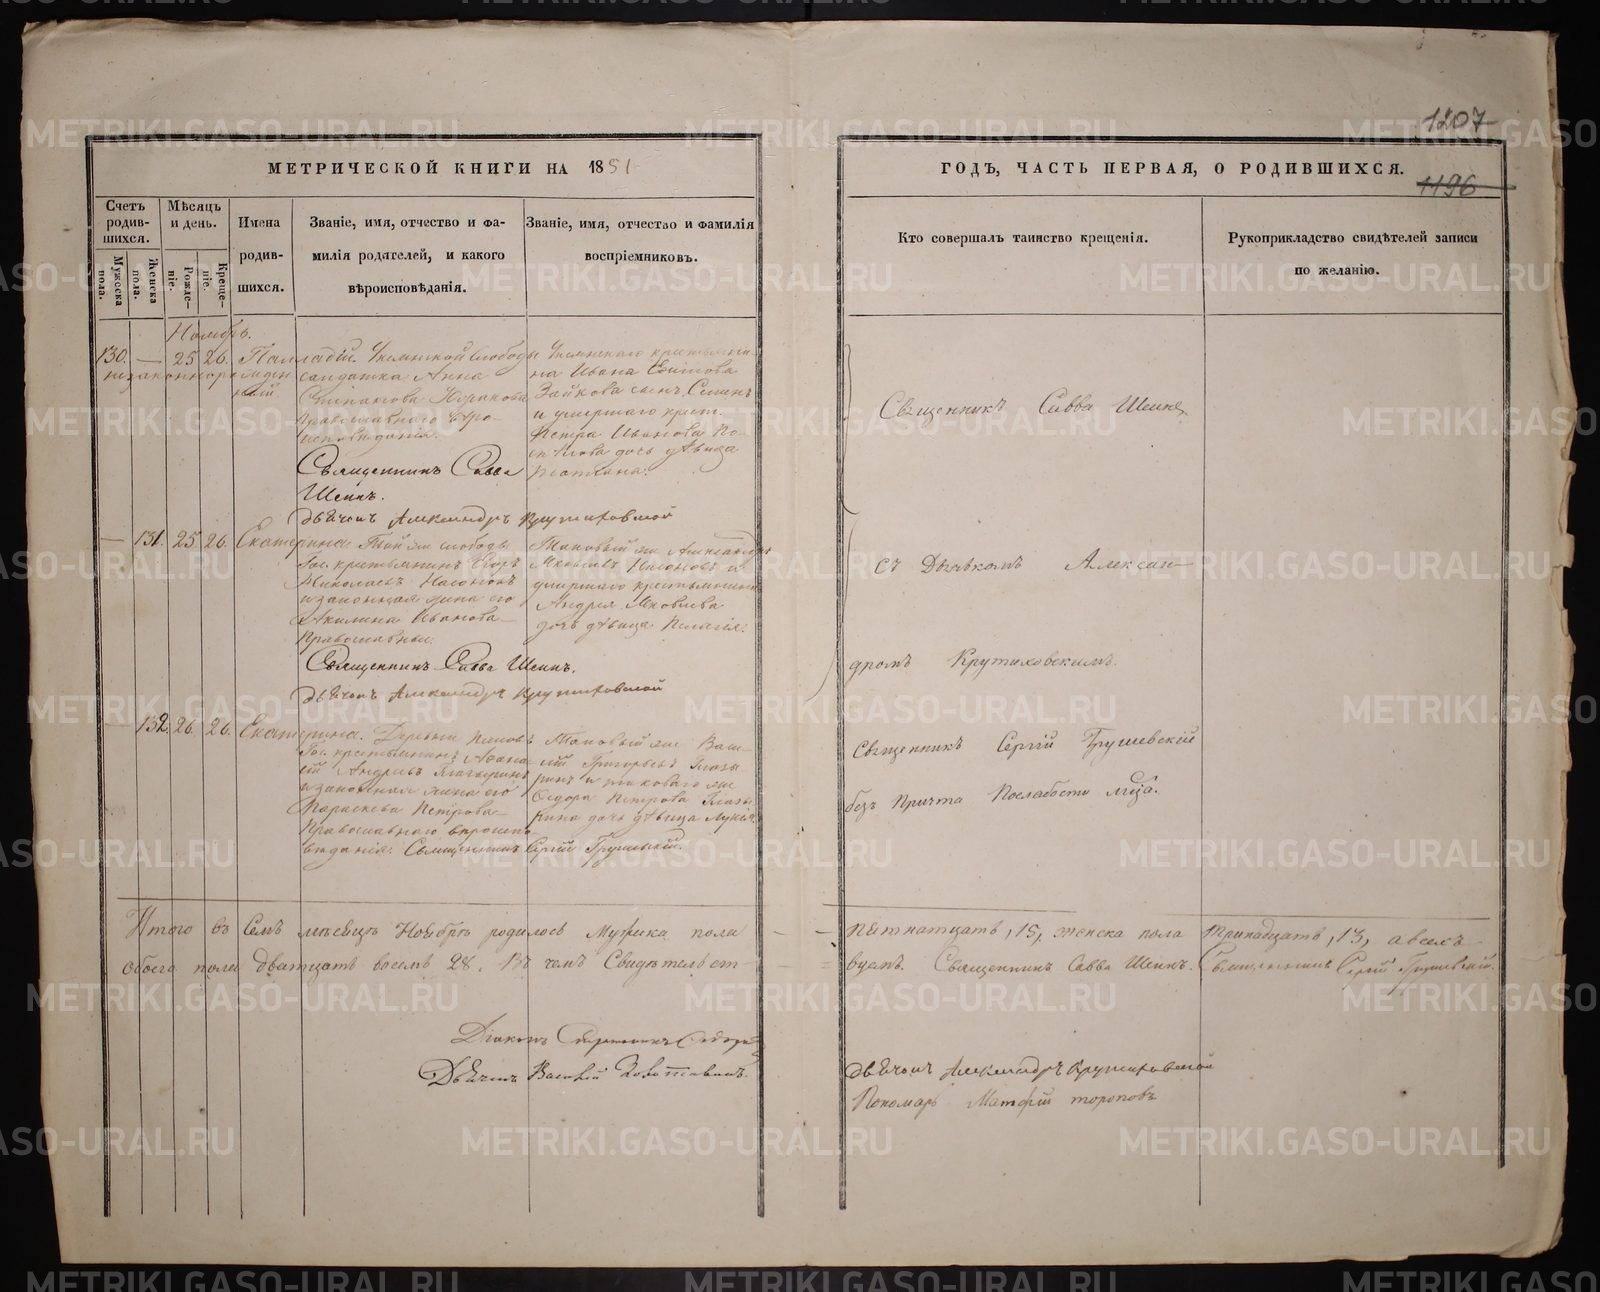 1207
1196
МЕТРИЧЕСКОЙ КНИГИ НА 1851
ГОДЪ, ЧАСТЬ ПЕРВАЯ, О РОДИВШИХСЯ.
Счетъ родив-шихся.
Мужеска пола.
Женска пола.
Мѣсяцъ и день.
Рожде-ніе.
Креще-ніе.
Имена
родив-
шихся.
Званіе, имя, отчество и фа-
милія родителей, и какого
вѣроисповѣданія.
Званіе, имя, отчество и фамилія
воспріемниковъ.
Кто совершалъ таинство крещенія.
Рукоприкладство свидѣтелей записи
по желанію.
Ноябрь.
130. — 25 26. Палладій.
незаконнорожден
ный
слободы
солдатка Анна
Православнаго вѣро-
исповѣданія.
Священникъ Савва
Шеинъ.
Дьячокъ Александръ Крутиховской
крестьяни-
на Ивана
Зайкова сынъ Семенъ
и умершаго крест.
Петра Иванова
дочь дѣвица
Священникъ Савва Шеинъ
— 131. 25 26. Екатерина.
Той же слободы
Гос. крестьянинъ Егоръ
Николаевъ
и законная жена его
Акилина Иванова
Православные.
Священникъ Савва Шеинъ.
Дьячокъ Александръ Крутиховской
Таковый же Александръ
Яковлевъ и
умершаго крестьянина
Андрея Яковлева
дочь дѣвица Пелагія.
съ Дьячкомъ Алексан-
дромъ Крутиховскимъ.
— 132. 26. 26. Екатерина.
Деревни
Гос. крестьянинъ Афана-
сій Андреевъ Глазыринъ
и законная жена его
Параскева Петрова
Православнаго вѣроиспо-
вѣданія. Священникъ Сергій Грушевскій.
Таковый же Васи-
лій Григорьевъ Глазы-
ринъ и таковаго же
Сидора Петрова Глазы-
рина дочь дѣвица
Священникъ Сергій Грушевскій
безъ Причта
Итого въ семъ мѣсяцѣ Ноябрѣ родилось Мужска пола
— пятнатцать, 15, женска пола тринадцать, 13, а всехъ
обоего пола дватцать восемь 28. Въ чемъ Свидѣтельст-
вуемъ. Священникъ Савва Шеинъ. Священникъ Сергій Грушевскій.
Діаконъ
Дьячекъ Василій
Дьячокъ Александръ Крутиховской
Пономарь Матфій Тороповъ
METRIKI.GASO-URAL.RU